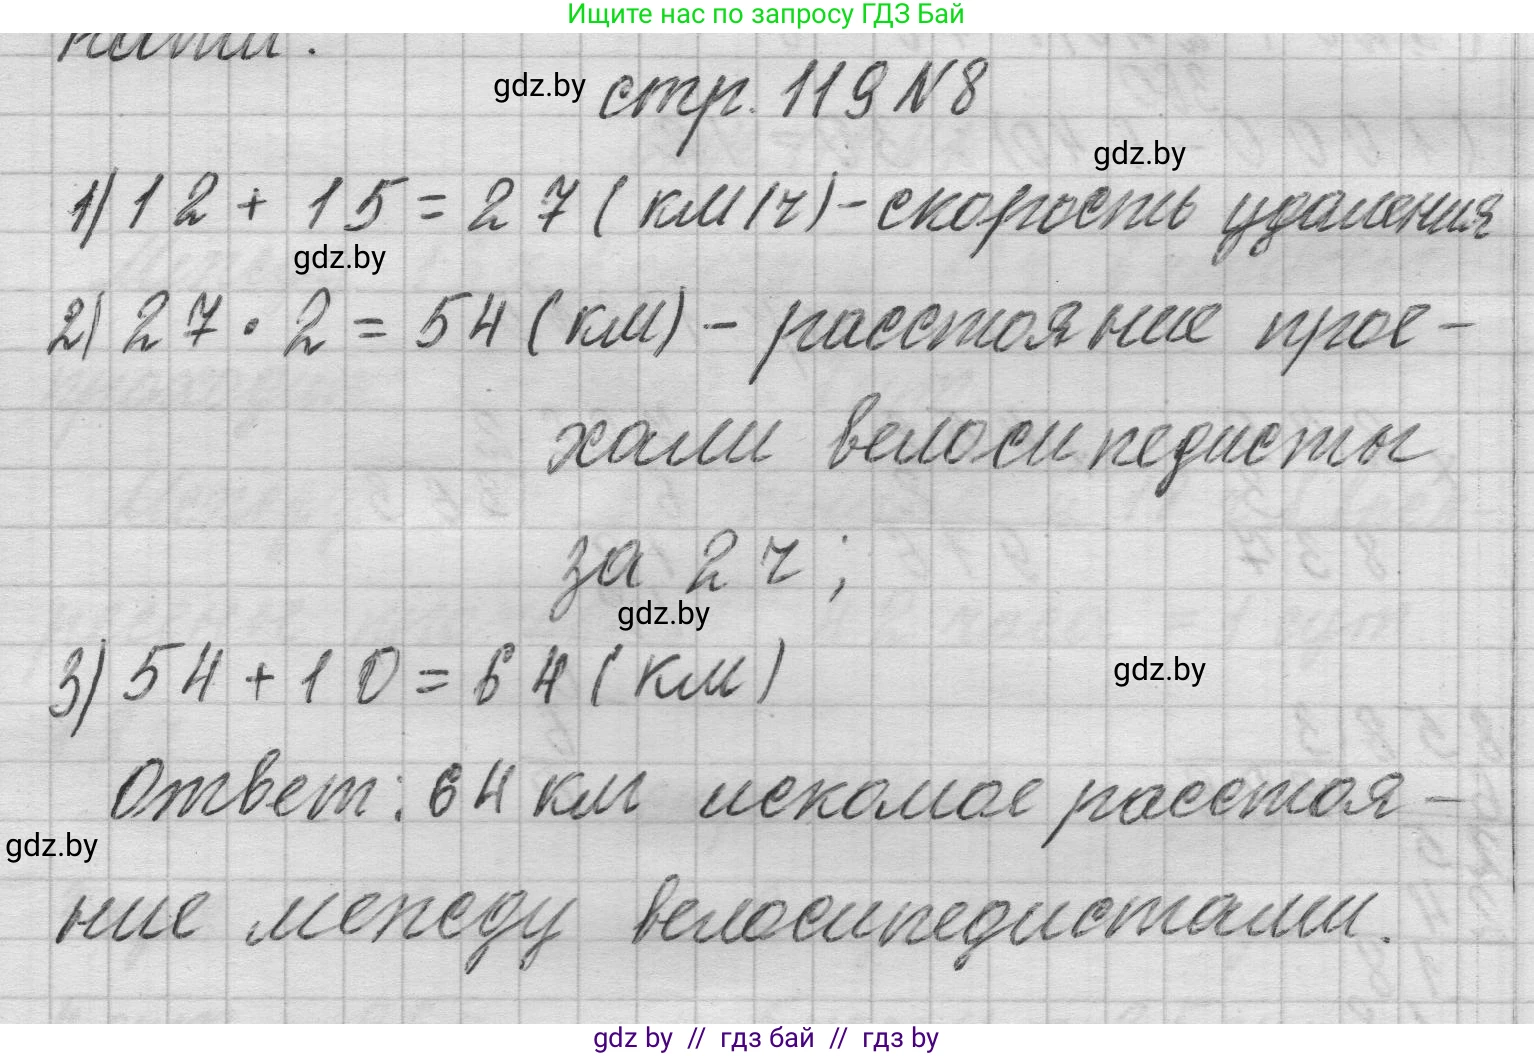 Ищите нас по запросу ГДЗ Бай
gdz.by
стр. 119 N 8
gdz.by
1) 12 + 15 = 27 (км/ч) - скорость удаления
gdz.by
2) 27 · 2 = 54 (км) - расстояние прое-
хали велосипедисты
за 2 ч;
gdz.by
3) 54 + 10 = 64 (км)
gdz.by
Ответ: 64 км искомое расстоя-
gdz.by
ние между велосипедистами.
gdz by // гдз бай // гдз by